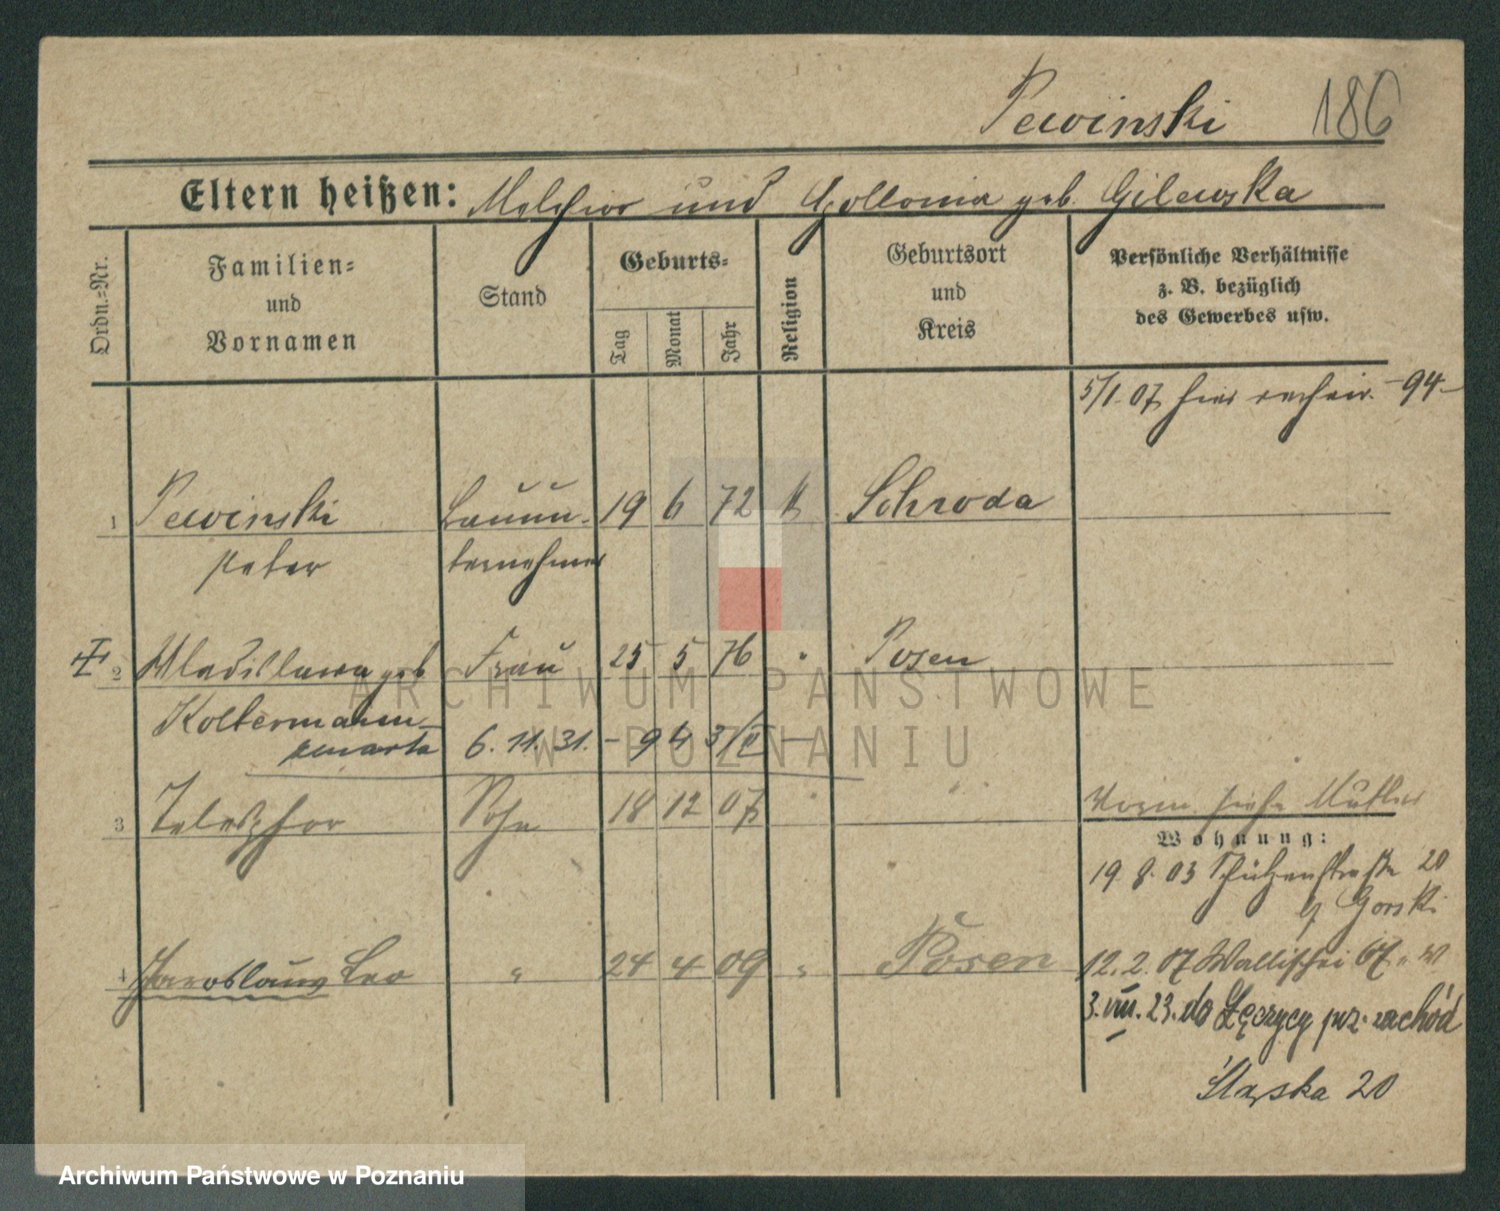 Pewinski 186
Eltern heißen: Melchior und Apollonia geb. Gilewska
Ordn.=Nr.
Familien=
und
Vornamen
Stand
Geburts=
Tag
Monat
Jahr
Religion
Geburtsort
und
Kreis
Persönliche Verhältnisse
z. B. bezüglich
des Gewerbes usw.
5/1. 07 hier -94-
1 Pewinski Bauun- 19 6 72 k Schroda
Peter ternehmer
2 Wladislawa geb Frau 25 5 76 " Posen
Koltermann
zmarła 6. 11. 31. - 94
3 Telesphor Sohn 18 12 07 " "
Vorm. siehe Mutter
Wohnung:
19. 8. 03 Schützenstraße 20
b/ Gorski
4 Jaroslaus Leo " 24 4 09 " Posen
12. 2. 07 Wallischei 67
3. VIII. 23. do Łęczycy pw. zachód
Śląska 20
ARCHIWUM PAŃSTWOWE
W POZNANIU
Archiwum Państwowe w Poznaniu